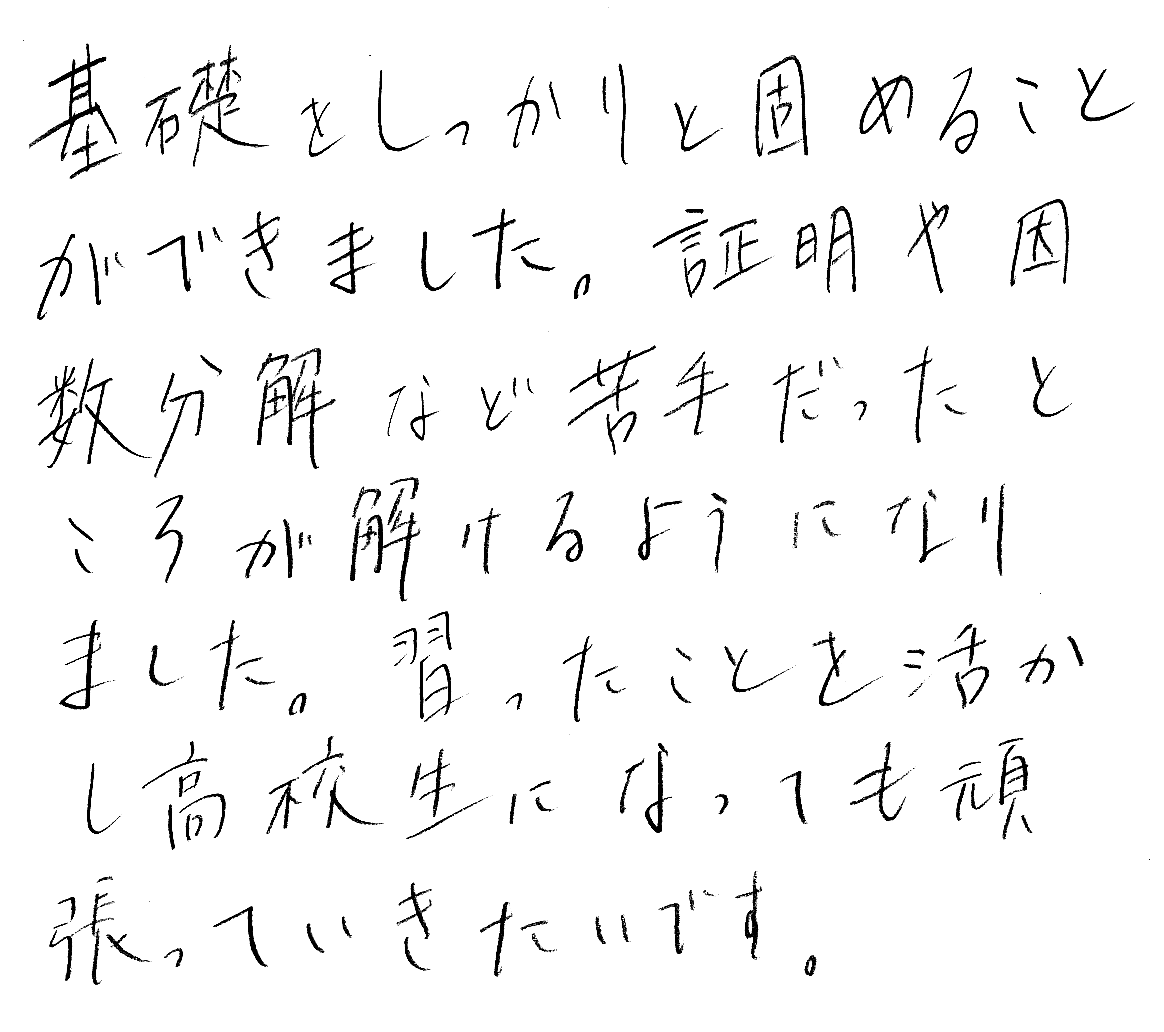 基礎をしっかりと固めること
ができました。証明や因
数分解など苦手だったと
ころが解けるようになり
ました。習ったことを活か
し高校生になっても頑
張っていきたいです。